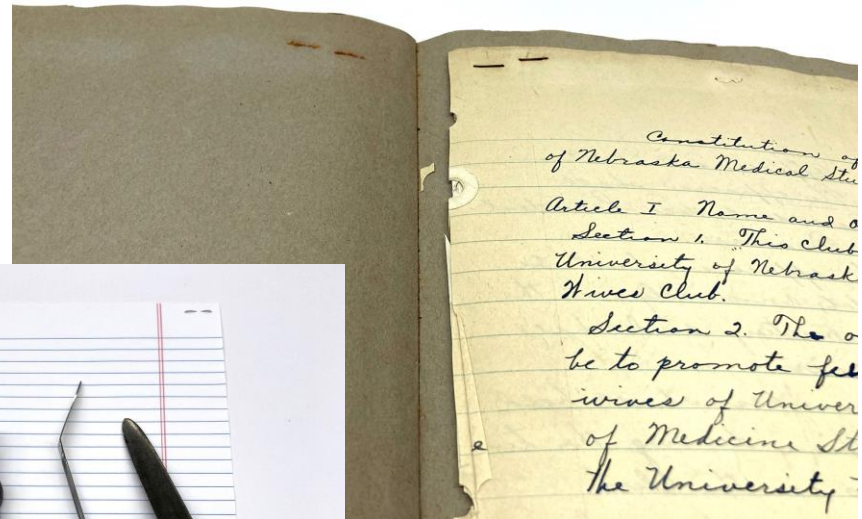 Constitution of
of Nebraska Medical Stu
Article I Name and o
Section 1. This club
University of Nebrask
Wives Club.
Section 2. The o
be to promote fel
wives of Univer
of Medicine St
the University
e